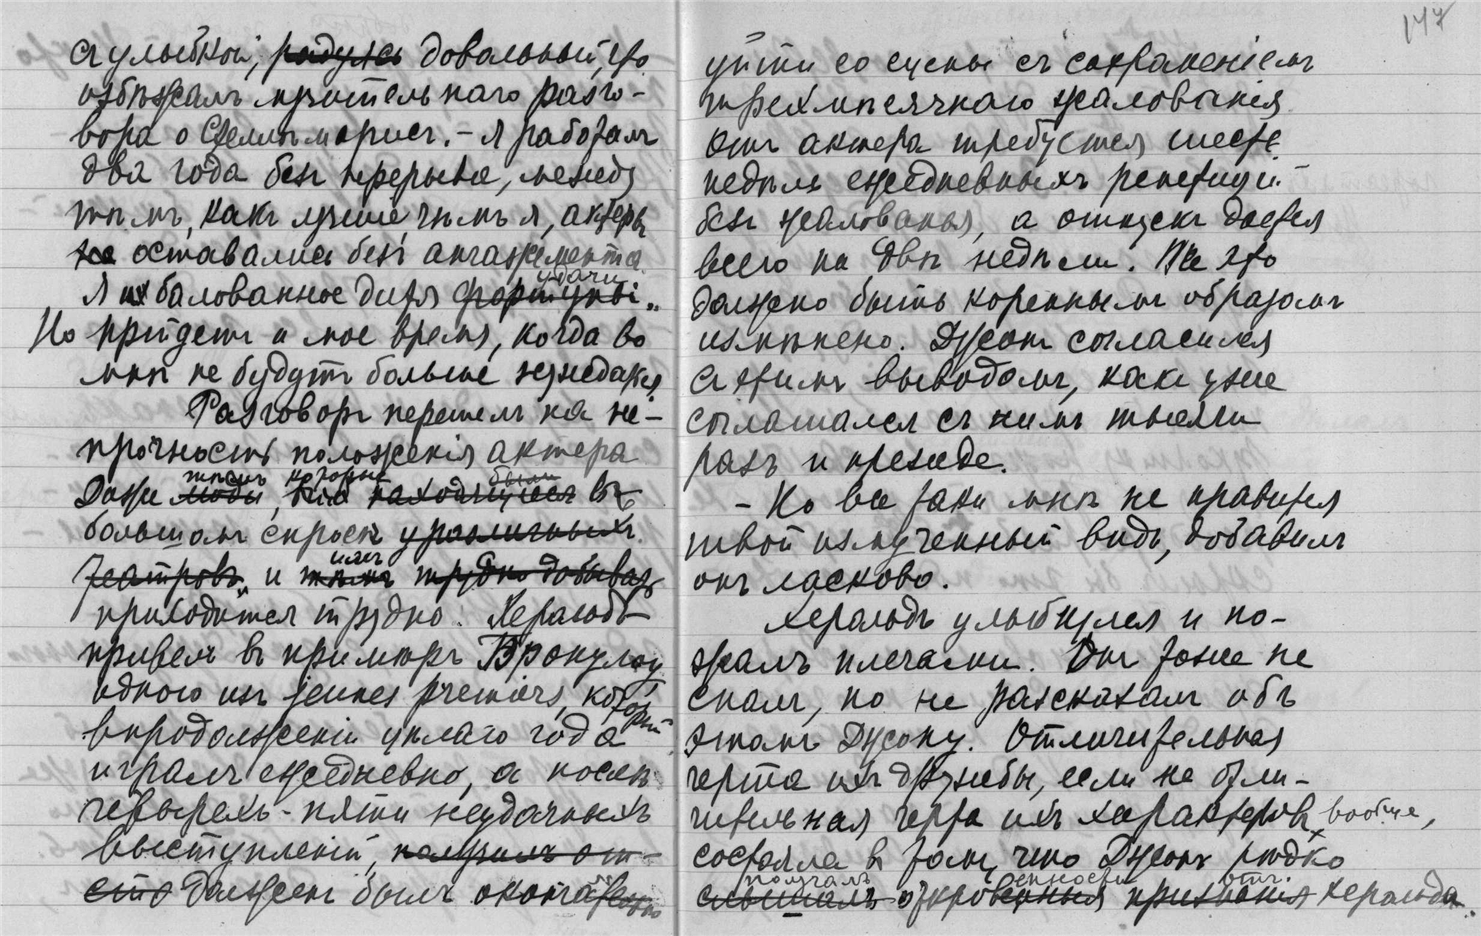 съ улыбкой, радуясь довольный, что
избѣжалъ мучительнаго разго-
вора о Стеллѣ Морисъ. – Я работалъ
два года безъ перерыва, между
тѣмъ, какъ лучшіе, чѣмъ я, актеры
не оставались безъ ангажемента.
удачи
Я их балованное дитя фортуны.
Но прійдетъ и мое время, когда во
мнѣ не будутъ больше нуждаться.
Разговоръ перешелъ на не-
прочность положенія актера
тѣмъ которые были
Даже люди, находящіеся въ
большомъ спросѣ у различныхъ
имъ
театровъ, и трудно добывать
приходится трудно. Херальдъ
привелъ въ примѣръ
одного изъ jeunes premiers, который
впродолженіи цѣлаго года
игралъ ежедневно, а послѣ
четырехъ-пяти неудачныхъ
выступленій, получилъ от-
долженъ былъ окончательно
147
уйти со сцены съ сохраненіемъ
трехмѣсячнаго жалованья
Отъ актера требуется шесть
недѣль ежедневныхъ репетицій
безъ жалованья, а отпускъ дается
всего на двѣ недѣли. Все это
должно быть кореннымъ образомъ
измѣнено. Джонъ согласился
съ этимъ выводомъ, какъ уже
соглашался съ нимъ тысячи
разъ и прежде.
– Но все таки мнѣ не нравится
твой измученный видъ, добавилъ
онъ ласково.
Херальдъ улыбнулся и по-
жалъ плечами. Онъ тоже не
спалъ, но не разсказалъ объ
этомъ Джону. Отличительная
черта ихъ дружбы, если не отли-
чительная черта ихъ характеровъ вообще,
состояла въ томъ, что Джонъ рѣдко
получалъ откровенности отъ
слышалъ откровенныя признанія Херальда.